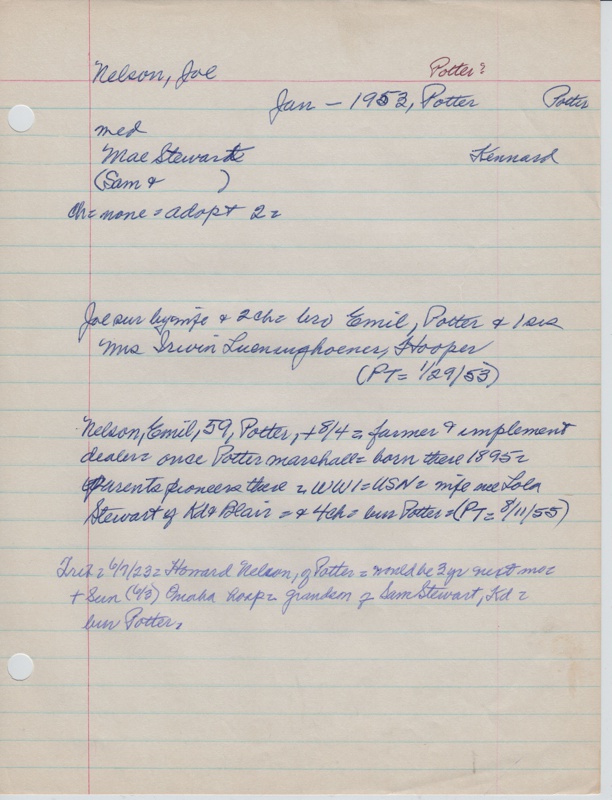 Nelson, Joe Potter?
Jan - 1953, Potter Potter
med
Mae Stewart Kennard
(Sam & )
Ch= none = adopt 2=
Joe sur by wife & 2 ch= bro Emil, Potter & 1 sis
Mrs Irwin Lueninghoener, Hooper
(PT= 1/29/53)
Nelson, Emil, 59, Potter, + 8/4 = farmer & implement
dealer= once Potter marshall= born there 1895=
parents pioneers there = WW1=USN= wife nee Lola
Stewart of Kd & Blair = & 4 ch= bur Potter=(PT= 8/11/55)
Trib= 6/7/23= Howard Nelson, of Potter= would be 3 yr next mo=
+ Sun (6/3) Omaha hosp= grandson of Sam Stewart, Kd=
bur Potter.